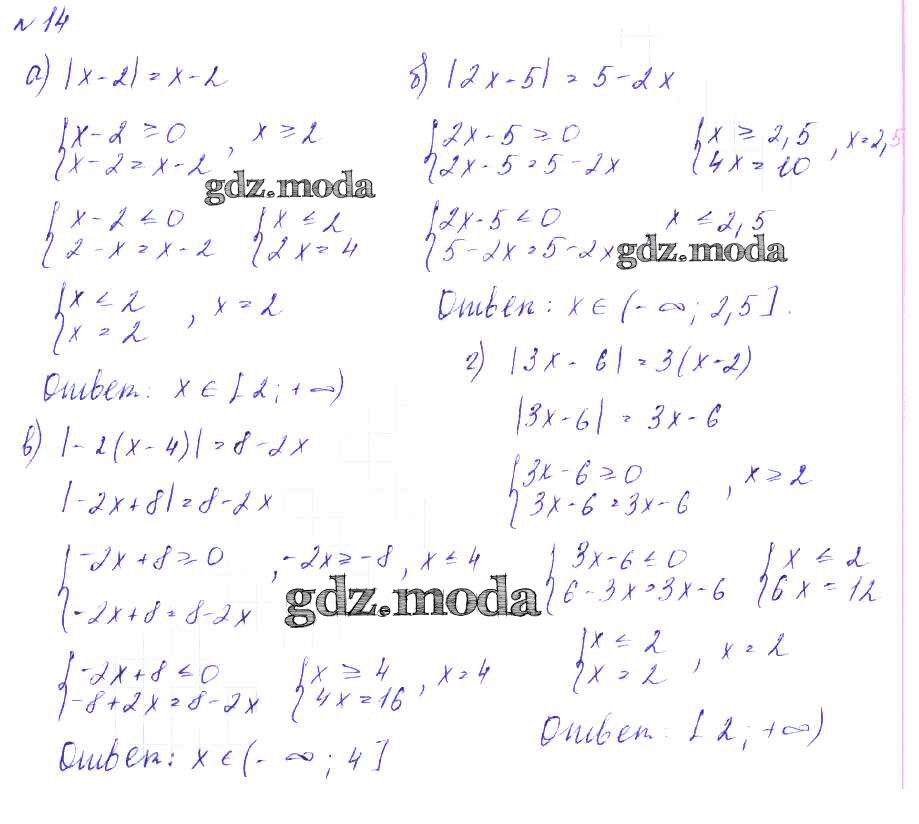 № 14
а) |x-2| = x-2
{ x-2 ≥ 0
{ x-2 = x-2 , x ≥ 2
gdz.moda
{ x-2 ≤ 0
{ 2-x = x-2
{ x ≤ 2
{ 2x = 4
{ x ≤ 2
{ x = 2 , x = 2
Ответ: x ∈ [2; +∞)
б) |2x-5| = 5-2x
{ 2x-5 ≥ 0
{ 2x-5 = 5-2x
{ x ≥ 2,5
{ 4x = 10 , x = 2,5
{ 2x-5 ≤ 0
{ 5-2x = 5-2x
x ≤ 2,5
gdz.moda
Ответ: x ∈ (-∞; 2,5].
в) |-2(x-4)| = 8-2x
|-2x+8| = 8-2x
{ -2x+8 ≥ 0 , -2x ≥ -8 , x ≤ 4
{ -2x+8 = 8-2x
gdz.moda
{ -2x+8 ≤ 0
{ -8+2x = 8-2x
{ x ≥ 4
{ 4x = 16 , x = 4
Ответ: x ∈ (-∞; 4]
г) |3x-6| = 3(x-2)
|3x-6| = 3x-6
{ 3x-6 ≥ 0
{ 3x-6 = 3x-6 , x ≥ 2
{ 3x-6 ≤ 0
{ 6-3x = 3x-6
{ x ≤ 2
{ 6x = 12
{ x ≤ 2
{ x = 2 , x = 2
Ответ: [2; +∞)